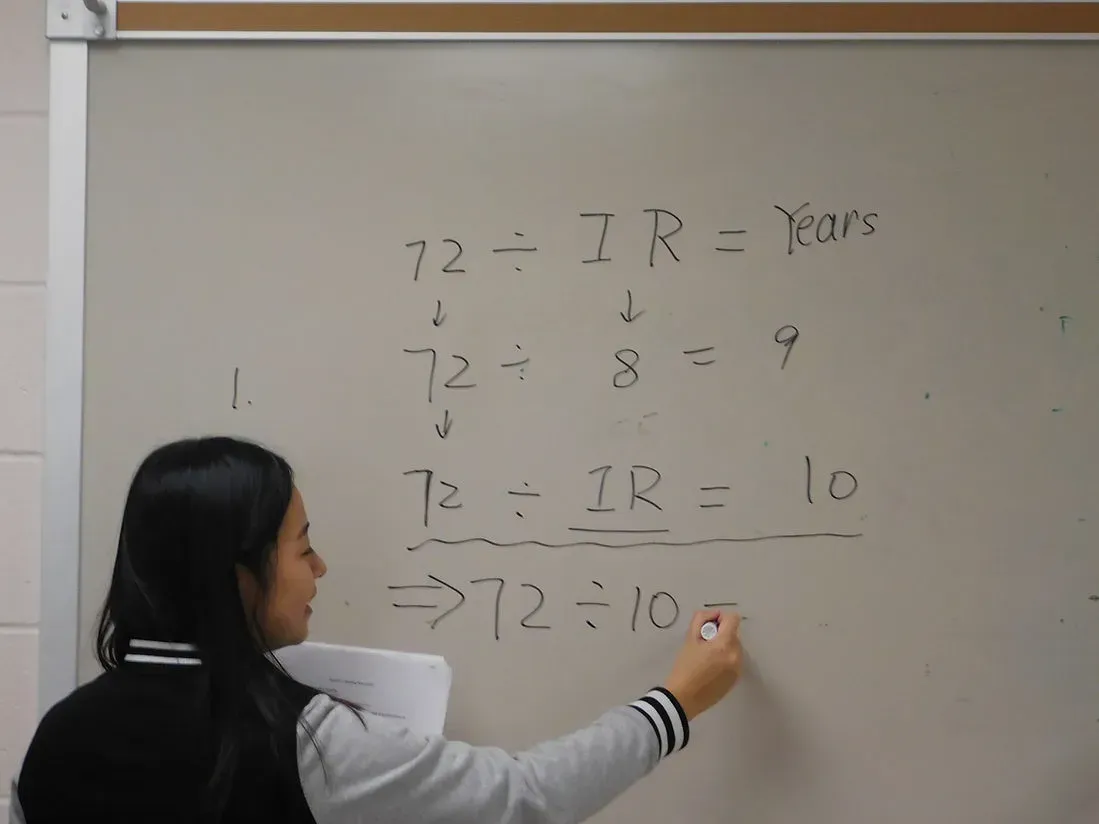 72 ÷ IR = Years
↓ ↓
72 ÷ 8 = 9
1.
↓
72 ÷ IR = 10
⇒ 72 ÷ 10 =